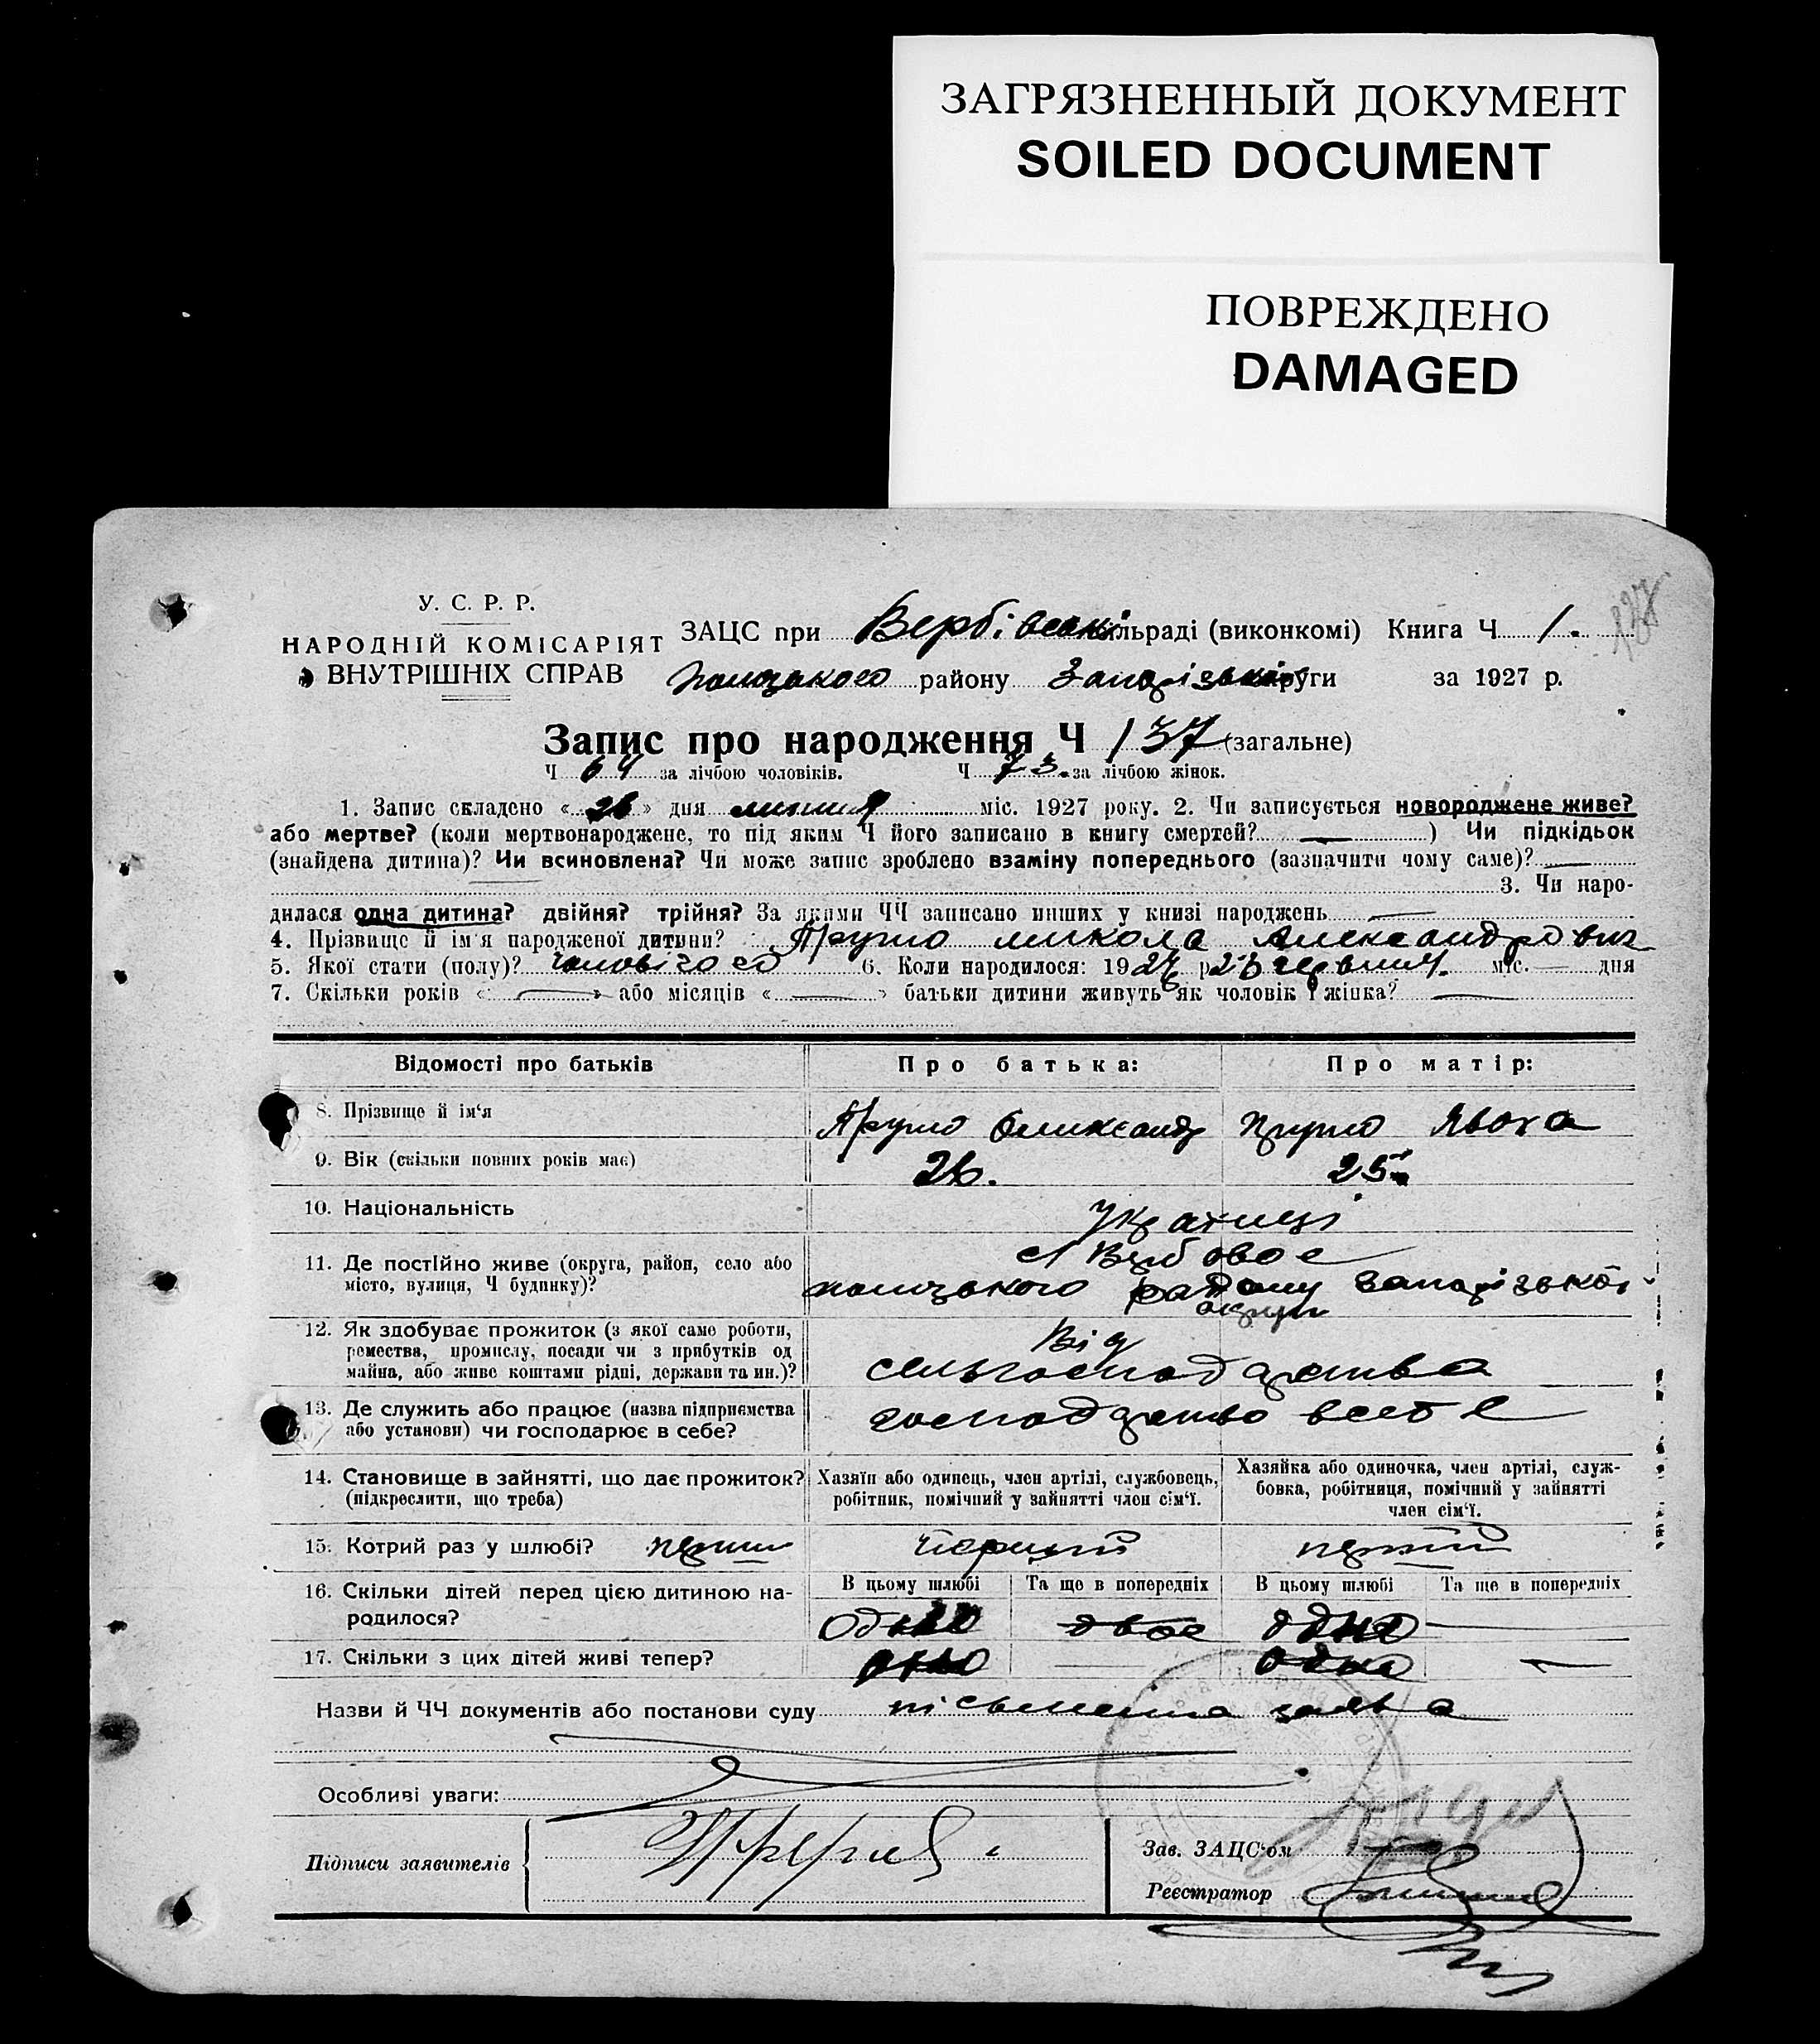 ЗАГРЯЗНЕННЫЙ ДОКУМЕНТ
SOILED DOCUMENT
ПОВРЕЖДЕНО
DAMAGED
У. С. Р. Р.
НАРОДНІЙ КОМІСАРІЯТ
ВНУТРІШНІХ СПРАВ
ЗАЦС при Вербівській сільраді (виконкомі) Книга Ч 1.
району Запорізької округи за 1927 р.
Запис про народження Ч 137 (загальне)
Ч 64 за лічбою чоловіків. Ч 73 за лічбою жінок.
1. Запис складено « 26 » дня липня міс. 1927 року. 2. Чи записується новороджене живе?
або мертве? (коли мертвонароджене, то під яким Ч його записано в книгу смертей? — ) Чи підкідьок
(знайдена дитина)? Чи всиновлена? Чи може запис зроблено взаміну попереднього (зазначити чому саме)? —
3. Чи наро-
дилася одна дитина? двійня? трійня? За якими ЧЧ записано инших у книзі народжень —
4. Прізвище й ім'я народженої дитини? Микола Александрович
5. Якої стати (полу)? чоловічого 6. Коли народилося: 1927 р 23 червня міс. — дня
7. Скільки років « — » або місяців « — » батьки дитини живуть як чоловік і жінка? —
Відомості про батьків
Про батька:
Про матір:
8. Прізвище й ім'я
9. Вік (скільки повних років має) 26. 25
10. Національність Українці
11. Де постійно живе (округа, район, село або
місто, вулиця, Ч будинку)?
с Вербовое
району Запорізької
округи
12. Як здобуває прожиток (з якої саме роботи,
ремества, промислу, посади чи з прибутків од
майна, або живе коштами рідні, держави та ин.)?
Від
сельгосподарства
13. Де служить або працює (назва підприємства
або установи) чи господарює в себе?
господарство всебе
14. Становище в зайнятті, що дає прожиток?
(підкреслити, що треба)
Хазяїн або одинець, член артілі, службовець,
робітник, помічний у зайнятті член сім'ї.
Хазяйка або одиночка, член артілі, служ-
бовка, робітниця, помічний у зайнятті
член сім'ї.
15. Котрий раз у шлюбі? перший
16. Скільки дітей перед цією дитиною на-
родилося?
В цьому шлюбі Та ще в попередніх В цьому шлюбі Та ще в попередніх
одно двое одно —
17. Скільки з цих дітей живі тепер? одно — одно —
Назви й ЧЧ документів або постанови суду письменна заява
Особливі уваги:
Підписи заявителів
Зав. ЗАЦС'ом
Реєстратор